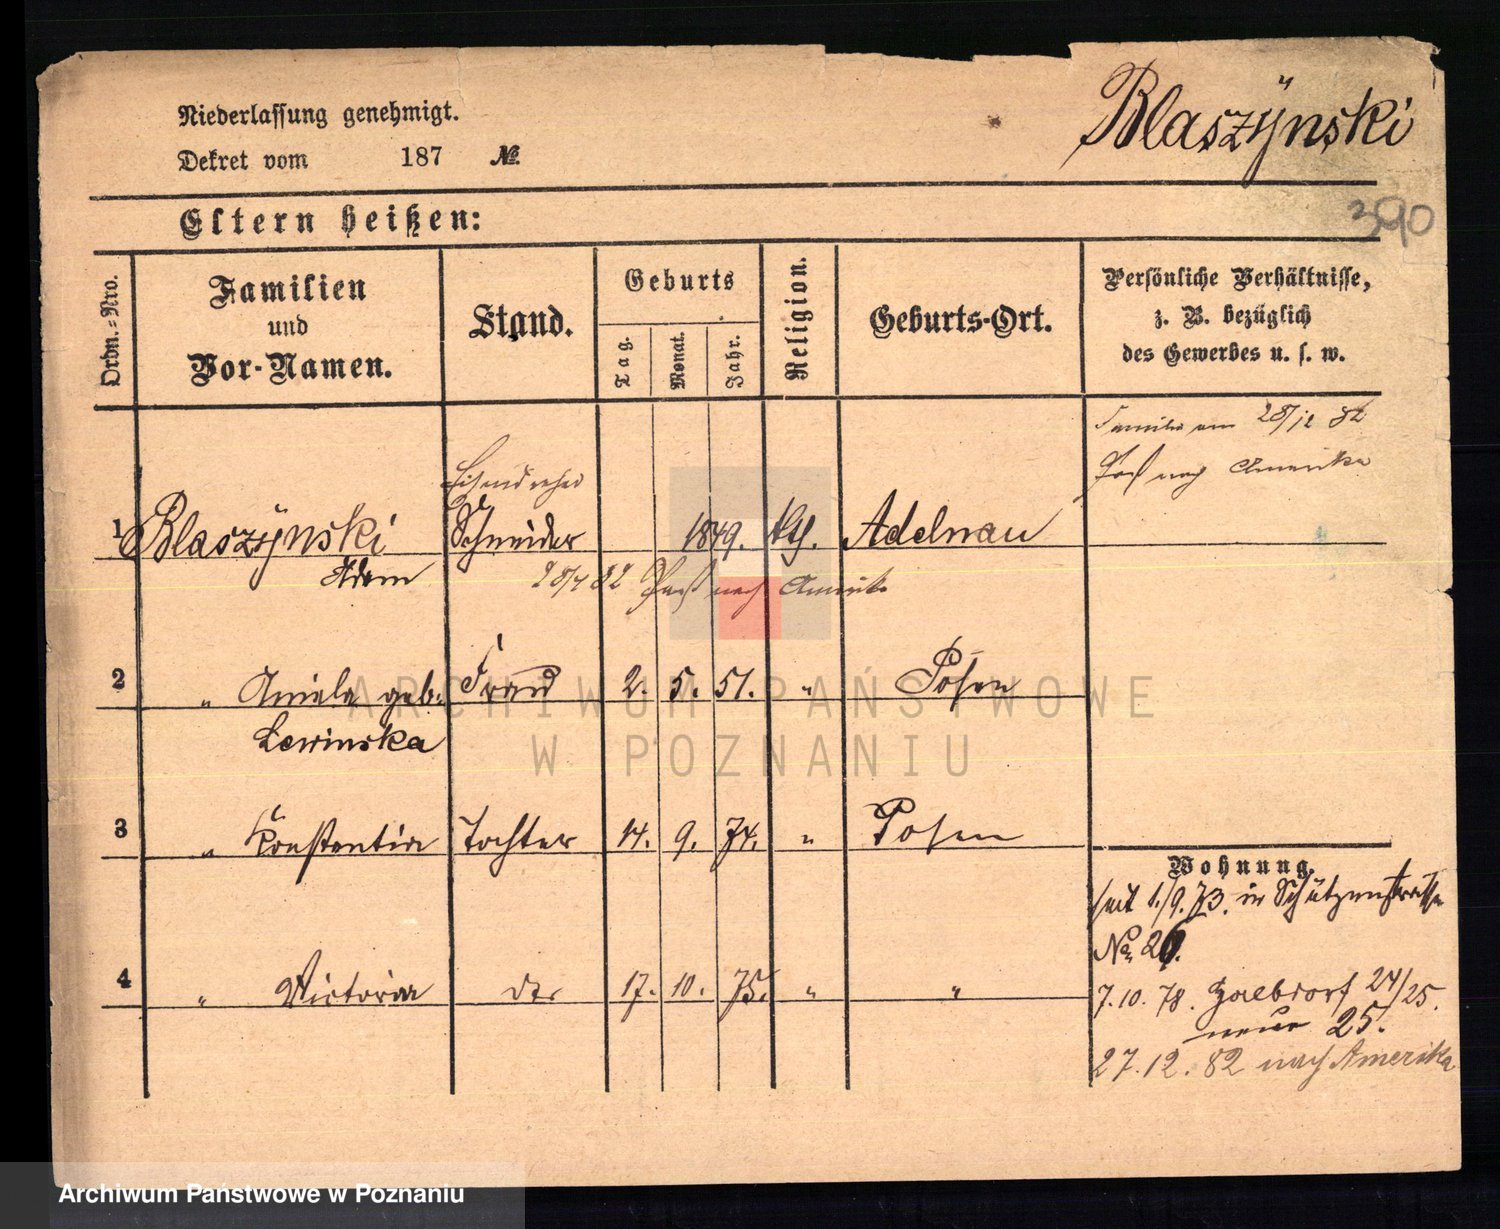 Niederlassung genehmigt.
Dekret vom 187 №
Blaszÿnski
390
Eltern heißen:
Ordn.=Nro.
Familien
und
Vor-Namen.
Stand.
Geburts
Tag.
Monat.
Jahr.
Religion.
Geburts-Ort.
Persönliche Verhältnisse,
z. B. bezüglich
des Gewerbes u. s. w.
Familie am 28/12 82
Paß nach Amerika
Eisendreher
1 Blaszÿnski Schneider 1849. kth. Adelnau
Adam 28/4 82 Paß nach Amerika
2 " Aniela geb. Frau 2. 5. 51. " Posen
Lewinska
3 " Konstantia Tochter 14. 9. 74. " Posen
4 " Victoria dto 17. 10. 75. " "
Wohnung.
seit 1./9. 73. in Schützenstrasse
No.
7. 10. 78. 24/25.
neue 25.
27. 12. 82 nach Amerika
ARCHIWUM PAŃSTWOWE
W POZNANIU
Archiwum Państwowe w Poznaniu